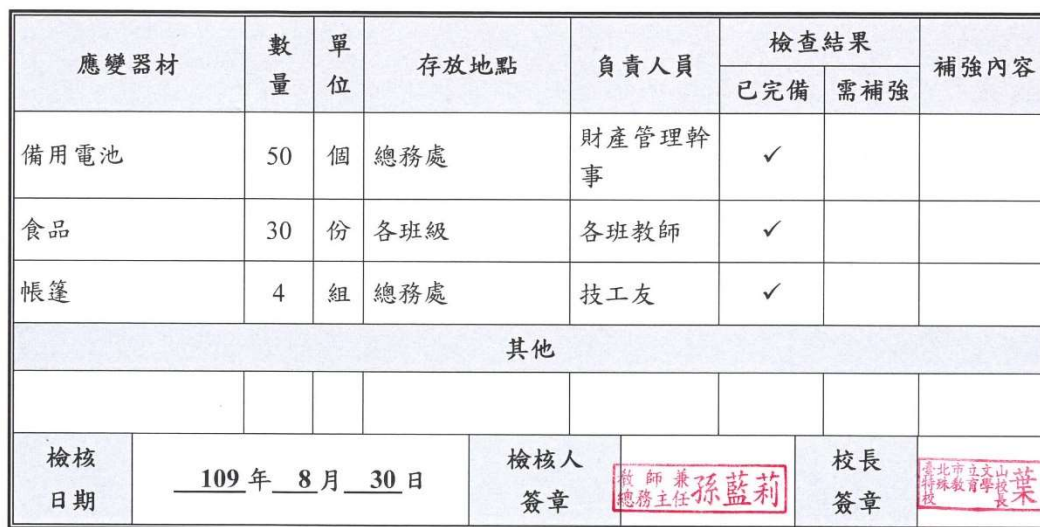 應變器材 數量 單位 存放地點 負責人員 檢查結果 補強內容
已完備 需補強
備用電池 50 個 總務處 財產管理幹事 ✓
食品 30 份 各班級 各班教師 ✓
帳篷 4 組 總務處 技工友 ✓
其他
檢核日期 109 年 8 月 30 日 檢核人簽章 教師兼總務主任 孫藍莉 校長簽章 臺北市立文山特殊教育學校校長 葉